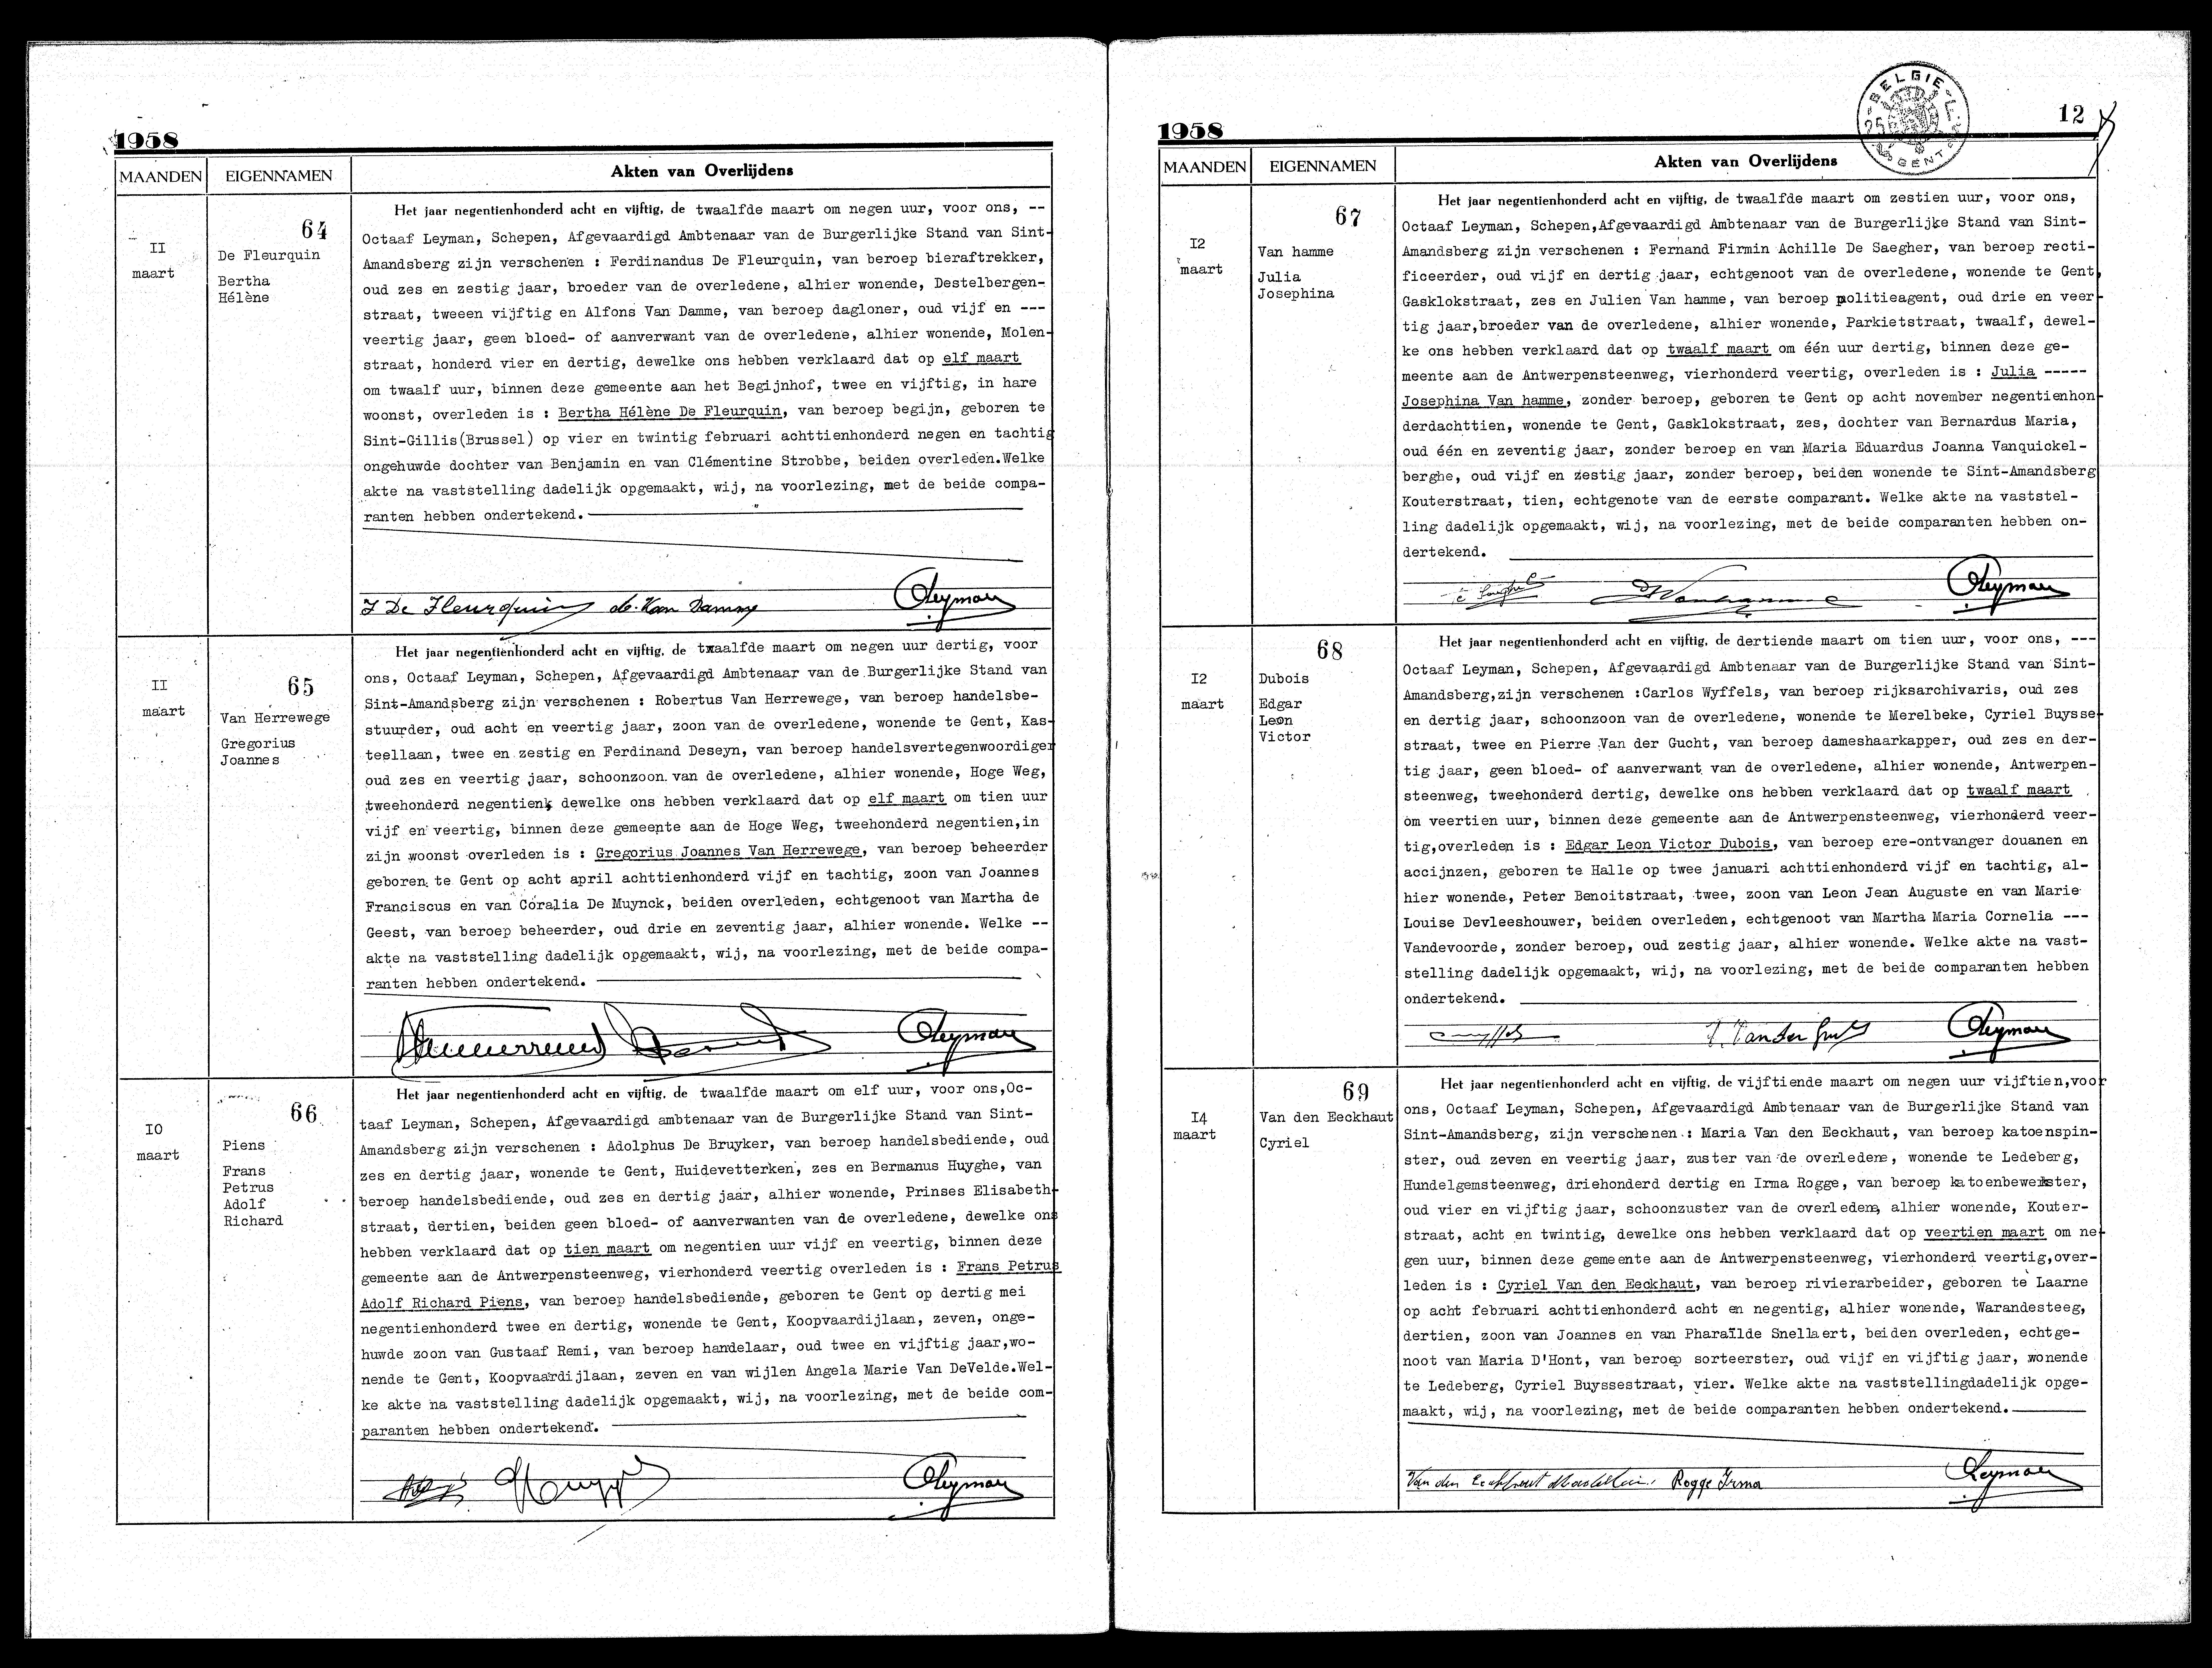 1958
MAANDEN
EIGENNAMEN
Akten van Overlijdens
II
maart
64
De Fleurquin
Bertha
Hélène
Het jaar negentienhonderd acht en vijftig, de twaalfde maart om negen uur, voor ons, --
Octaaf Leyman, Schepen, Afgevaardigd Ambtenaar van de Burgerlijke Stand van Sint-
Amandsberg zijn verschenen : Ferdinandus De Fleurquin, van beroep bieraftrekker,
oud zes en zestig jaar, broeder van de overledene, alhier wonende, Destelbergen-
straat, tweeen vijftig en Alfons Van Damme, van beroep dagloner, oud vijf en ---
veertig jaar, geen bloed- of aanverwant van de overledene, alhier wonende, Molen-
straat, honderd vier en dertig, dewelke ons hebben verklaard dat op elf maart
om twaalf uur, binnen deze gemeente aan het Begijnhof, twee en vijftig, in hare
woonst, overleden is : Bertha Hélène De Fleurquin, van beroep begijn, geboren te
Sint-Gillis(Brussel) op vier en twintig februari achttienhonderd negen en tachtig
ongehuwde dochter van Benjamin en van Clémentine Strobbe, beiden overleden.Welke
akte na vaststelling dadelijk opgemaakt, wij, na voorlezing, met de beide compa-
ranten hebben ondertekend.
De Fleurquin de Van Damme Leyman
II
maart
65
Van Herrewege
Gregorius
Joannes
Het jaar negentienhonderd acht en vijftig, de twaalfde maart om negen uur dertig, voor
ons, Octaaf Leyman, Schepen, Afgevaardigd Ambtenaar van de Burgerlijke Stand van
Sint-Amandsberg zijn verschenen : Robertus Van Herrewege, van beroep handelsbe-
stuurder, oud acht en veertig jaar, zoon van de overledene, wonende te Gent, Kas-
teellaan, twee en zestig en Ferdinand Deseyn, van beroep handelsvertegenwoordiger
oud zes en veertig jaar, schoonzoon van de overledene, alhier wonende, Hoge Weg,
tweehonderd negentien, dewelke ons hebben verklaard dat op elf maart om tien uur
vijf en veertig, binnen deze gemeente aan de Hoge Weg, tweehonderd negentien,in
zijn woonst overleden is : Gregorius Joannes Van Herrewege, van beroep beheerder
geboren te Gent op acht april achttienhonderd vijf en tachtig, zoon van Joannes
Franciscus en van Coralia De Muynck, beiden overleden, echtgenoot van Martha de
Geest, van beroep beheerder, oud drie en zeventig jaar, alhier wonende. Welke --
akte na vaststelling dadelijk opgemaakt, wij, na voorlezing, met de beide compa-
ranten hebben ondertekend.
Leyman
IO
maart
66
Piens
Frans
Petrus
Adolf
Richard
Het jaar negentienhonderd acht en vijftig, de twaalfde maart om elf uur, voor ons,Oc-
taaf Leyman, Schepen, Afgevaardigd ambtenaar van de Burgerlijke Stand van Sint-
Amandsberg zijn verschenen : Adolphus De Bruyker, van beroep handelsbediende, oud
zes en dertig jaar, wonende te Gent, Huidevetterken, zes en Bermanus Huyghe, van
beroep handelsbediende, oud zes en dertig jaar, alhier wonende, Prinses Elisabeth-
straat, dertien, beiden geen bloed- of aanverwanten van de overledene, dewelke ons
hebben verklaard dat op tien maart om negentien uur vijf en veertig, binnen deze
gemeente aan de Antwerpensteenweg, vierhonderd veertig overleden is : Frans Petrus
Adolf Richard Piens, van beroep handelsbediende, geboren te Gent op dertig mei
negentienhonderd twee en dertig, wonende te Gent, Koopvaardijlaan, zeven, onge-
huwde zoon van Gustaaf Remi, van beroep handelaar, oud twee en vijftig jaar,wo-
nende te Gent, Koopvaardijlaan, zeven en van wijlen Angela Marie Van DeVelde.Wel-
ke akte na vaststelling dadelijk opgemaakt, wij, na voorlezing, met de beide com-
paranten hebben ondertekend.
Leyman
1958
BELGIE
GENT
12
MAANDEN
EIGENNAMEN
Akten van Overlijdens
I2
maart
67
Van hamme
Julia
Josephina
Het jaar negentienhonderd acht en vijftig, de twaalfde maart om zestien uur, voor ons,
Octaaf Leyman, Schepen,Afgevaardigd Ambtenaar van de Burgerlijke Stand van Sint-
Amandsberg zijn verschenen : Fernand Firmin Achille De Saegher, van beroep recti-
ficeerder, oud vijf en dertig jaar, echtgenoot van de overledene, wonende te Gent,
Gasklokstraat, zes en Julien Van hamme, van beroep politieagent, oud drie en veer-
tig jaar,broeder van de overledene, alhier wonende, Parkietstraat, twaalf, dewel-
ke ons hebben verklaard dat op twaalf maart om één uur dertig, binnen deze ge-
meente aan de Antwerpensteenweg, vierhonderd veertig, overleden is : Julia -----
Josephina Van hamme, zonder beroep, geboren te Gent op acht november negentienhon-
derdachttien, wonende te Gent, Gasklokstraat, zes, dochter van Bernardus Maria,
oud één en zeventig jaar, zonder beroep en van Maria Eduardus Joanna Vanquickel-
berghe, oud vijf en zestig jaar, zonder beroep, beiden wonende te Sint-Amandsberg
Kouterstraat, tien, echtgenote van de eerste comparant. Welke akte na vaststel-
ling dadelijk opgemaakt, wij, na voorlezing, met de beide comparanten hebben on-
dertekend.
Leyman
I2
maart
68
Dubois
Edgar
Leon
Victor
Het jaar negentienhonderd acht en vijftig, de dertiende maart om tien uur, voor ons, ---
Octaaf Leyman, Schepen, Afgevaardigd Ambtenaar van de Burgerlijke Stand van Sint-
Amandsberg,zijn verschenen :Carlos Wyffels, van beroep rijksarchivaris, oud zes
en dertig jaar, schoonzoon van de overledene, wonende te Merelbeke, Cyriel Buysse-
straat, twee en Pierre Van der Gucht, van beroep dameshaarkapper, oud zes en der-
tig jaar, geen bloed- of aanverwant van de overledene, alhier wonende, Antwerpen-
steenweg, tweehonderd dertig, dewelke ons hebben verklaard dat op twaalf maart
om veertien uur, binnen deze gemeente aan de Antwerpensteenweg, vierhonderd veer-
tig,overleden is : Edgar Leon Victor Dubois, van beroep ere-ontvanger douanen en
accijnzen, geboren te Halle op twee januari achttienhonderd vijf en tachtig, al-
hier wonende, Peter Benoitstraat, twee, zoon van Leon Jean Auguste en van Marie
Louise Devleeshouwer, beiden overleden, echtgenoot van Martha Maria Cornelia ---
Vandevoorde, zonder beroep, oud zestig jaar, alhier wonende. Welke akte na vast-
stelling dadelijk opgemaakt, wij, na voorlezing, met de beide comparanten hebben
ondertekend.
Leyman
I4
maart
69
Van den Eeckhaut
Cyriel
Het jaar negentienhonderd acht en vijftig, de vijftiende maart om negen uur vijftien,voor
ons, Octaaf Leyman, Schepen, Afgevaardigd Ambtenaar van de Burgerlijke Stand van
Sint-Amandsberg, zijn verschenen : Maria Van den Eeckhaut, van beroep katoenspin-
ster, oud zeven en veertig jaar, zuster van de overledene, wonende te Ledeberg,
Hundelgemsteenweg, driehonderd dertig en Irma Rogge, van beroep katoenbewerkster,
oud vier en vijftig jaar, schoonzuster van de overledene, alhier wonende, Kouter-
straat, acht en twintig, dewelke ons hebben verklaard dat op veertien maart om ne-
gen uur, binnen deze gemeente aan de Antwerpensteenweg, vierhonderd veertig,over-
leden is : Cyriel Van den Eeckhaut, van beroep rivierarbeider, geboren te Laarne
op acht februari achttienhonderd acht en negentig, alhier wonende, Warandesteeg,
dertien, zoon van Joannes en van Pharaïlde Snellaert, beiden overleden, echtge-
noot van Maria D'Hont, van beroep sorteerster, oud vijf en vijftig jaar, wonende
te Ledeberg, Cyriel Buyssestraat, vier. Welke akte na vaststellingdadelijk opge-
maakt, wij, na voorlezing, met de beide comparanten hebben ondertekend.
Van den Rogge Irma Leyman